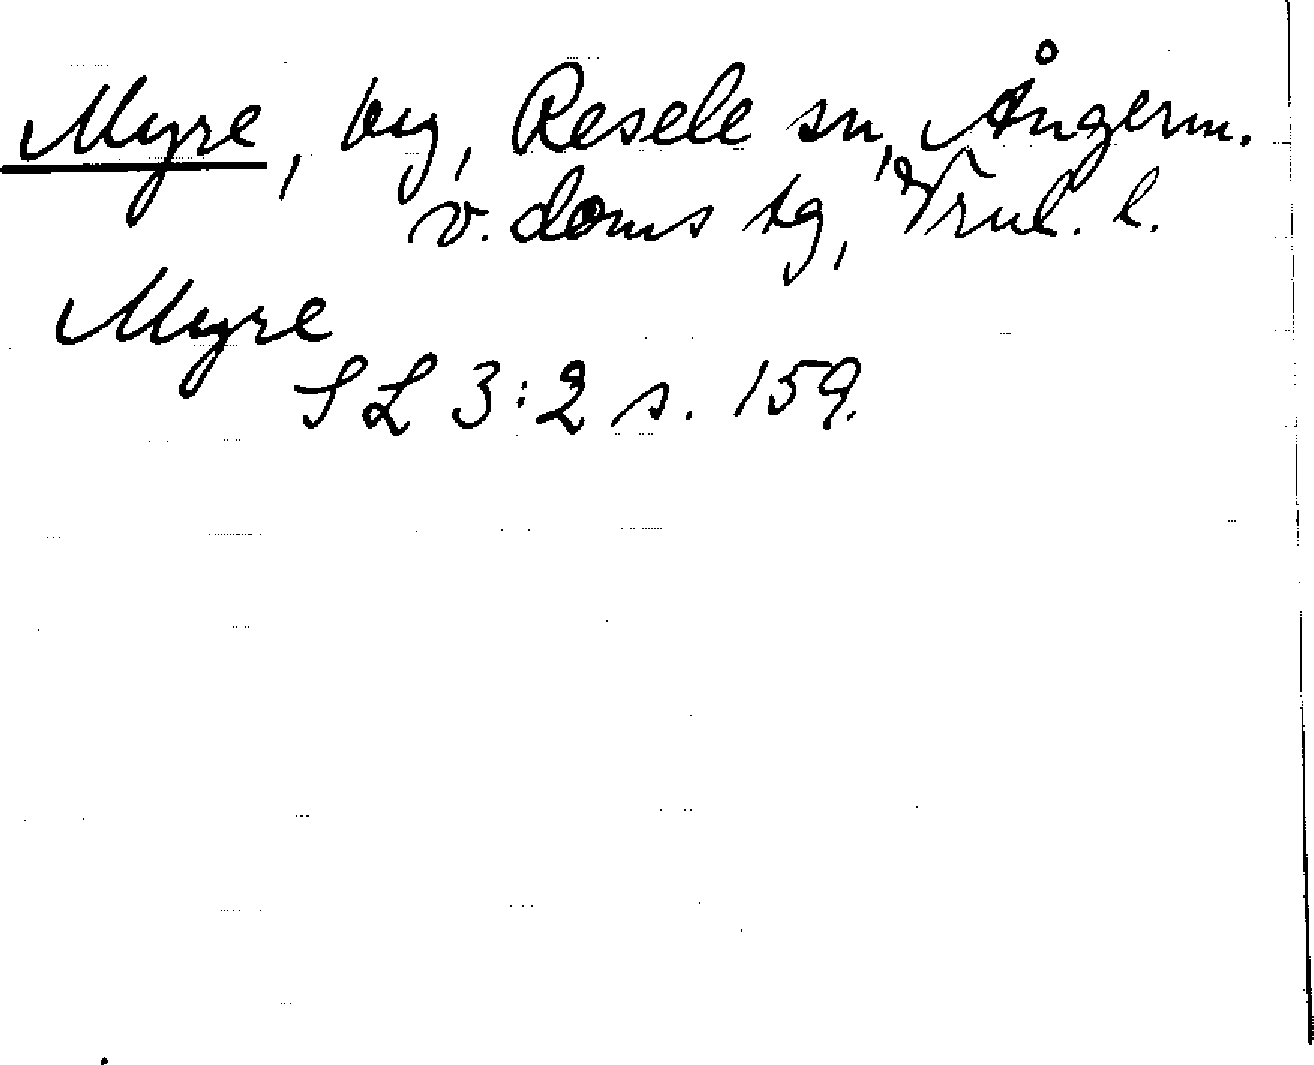 Myre, by, Resele sn, Ångerm.
v. doms sg, Vrnl. l.
Myre
SL 3:2 s. 159.